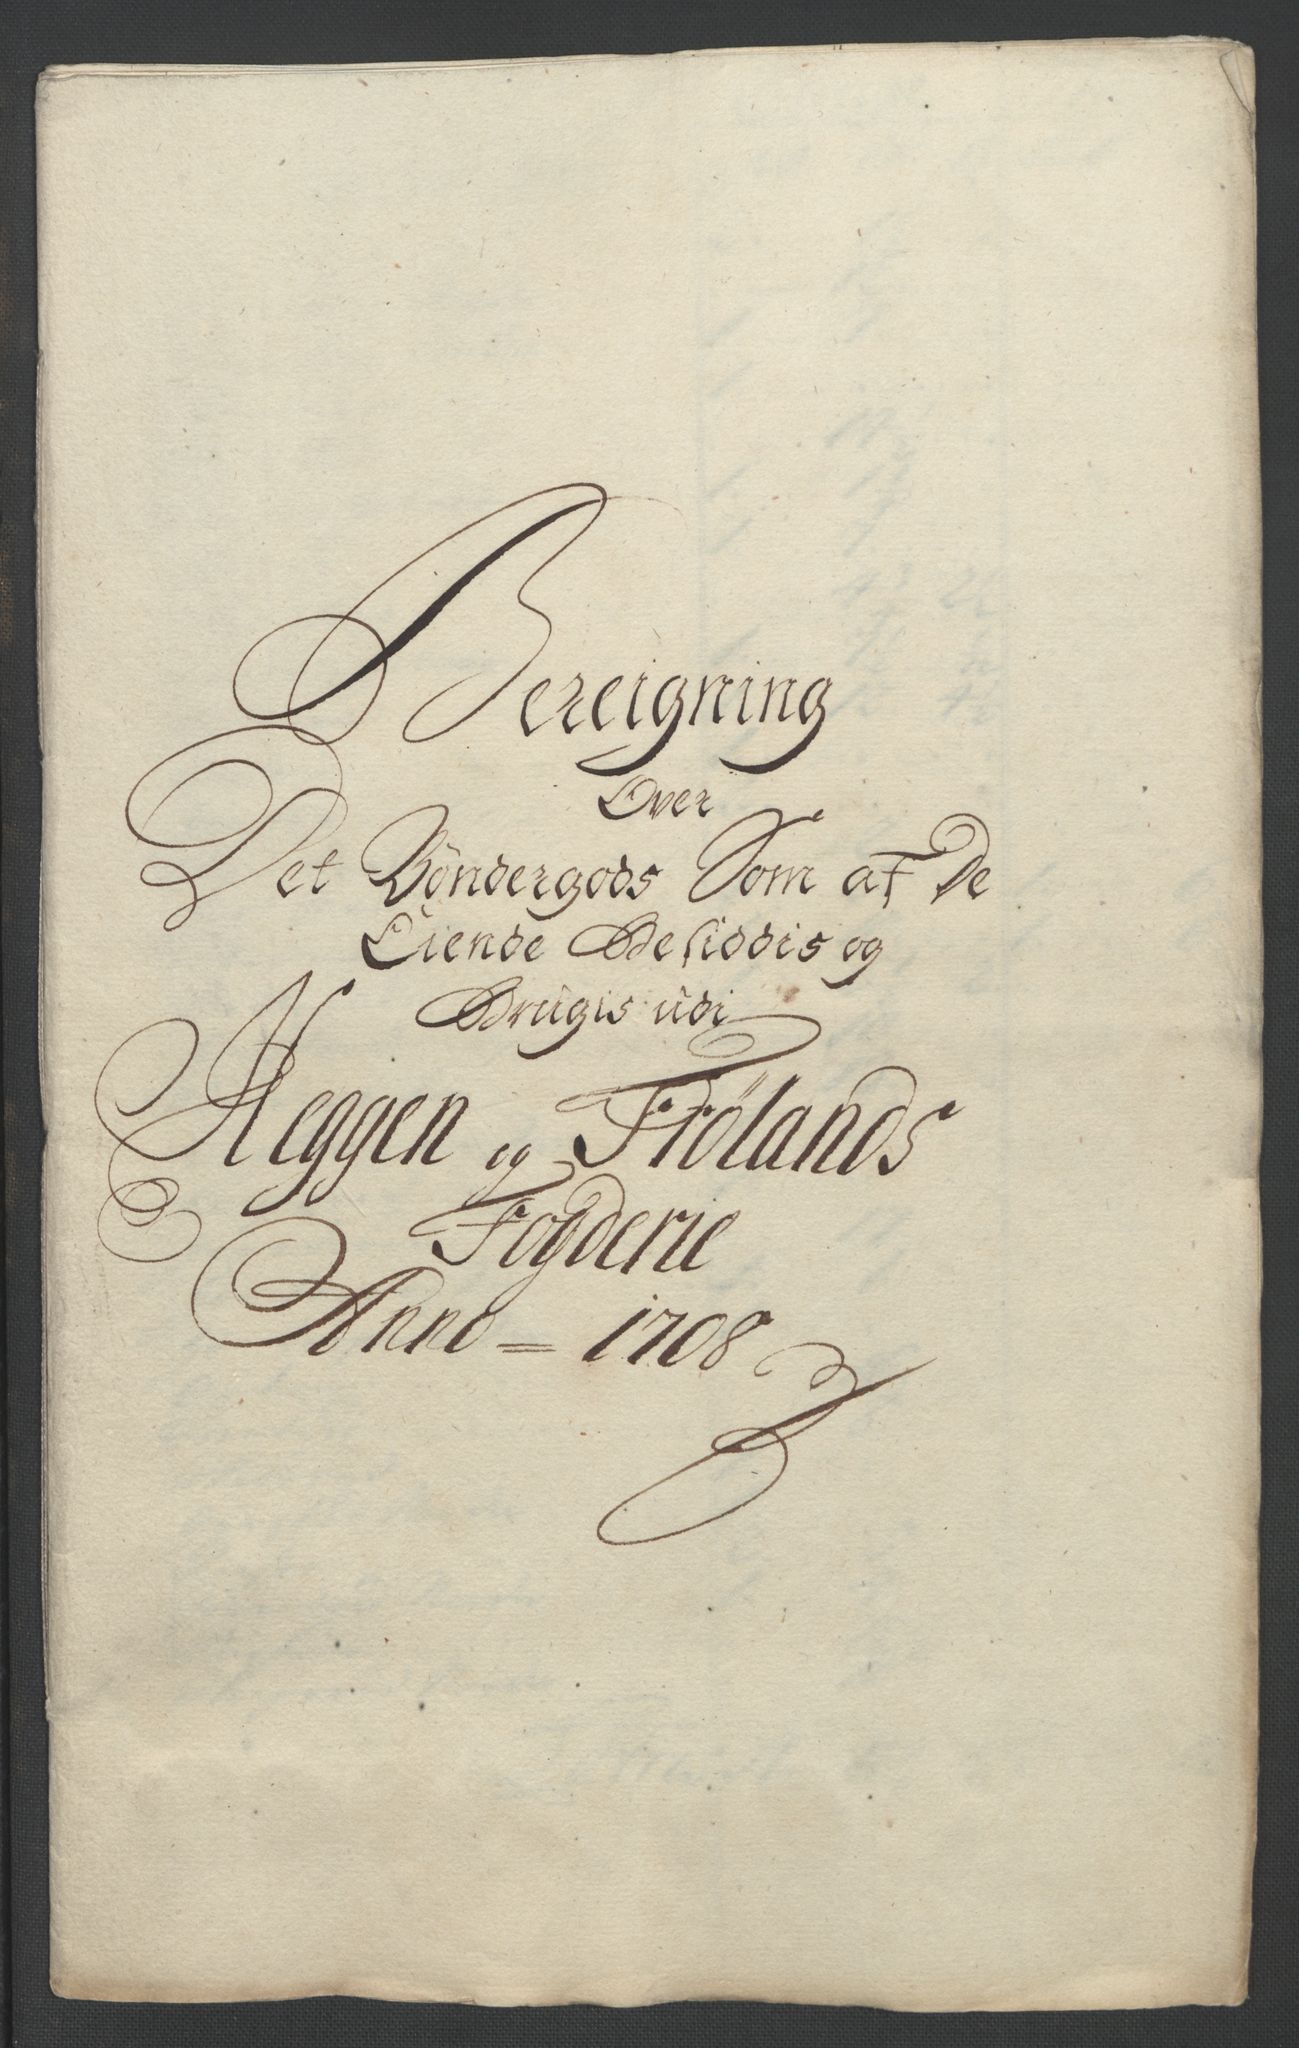 Bereigning
Over
Det Böndergods Som af De
Eiende Besiddis og
Brugis udi
Heggen og Frölands
Fogderie
Anno = 1708